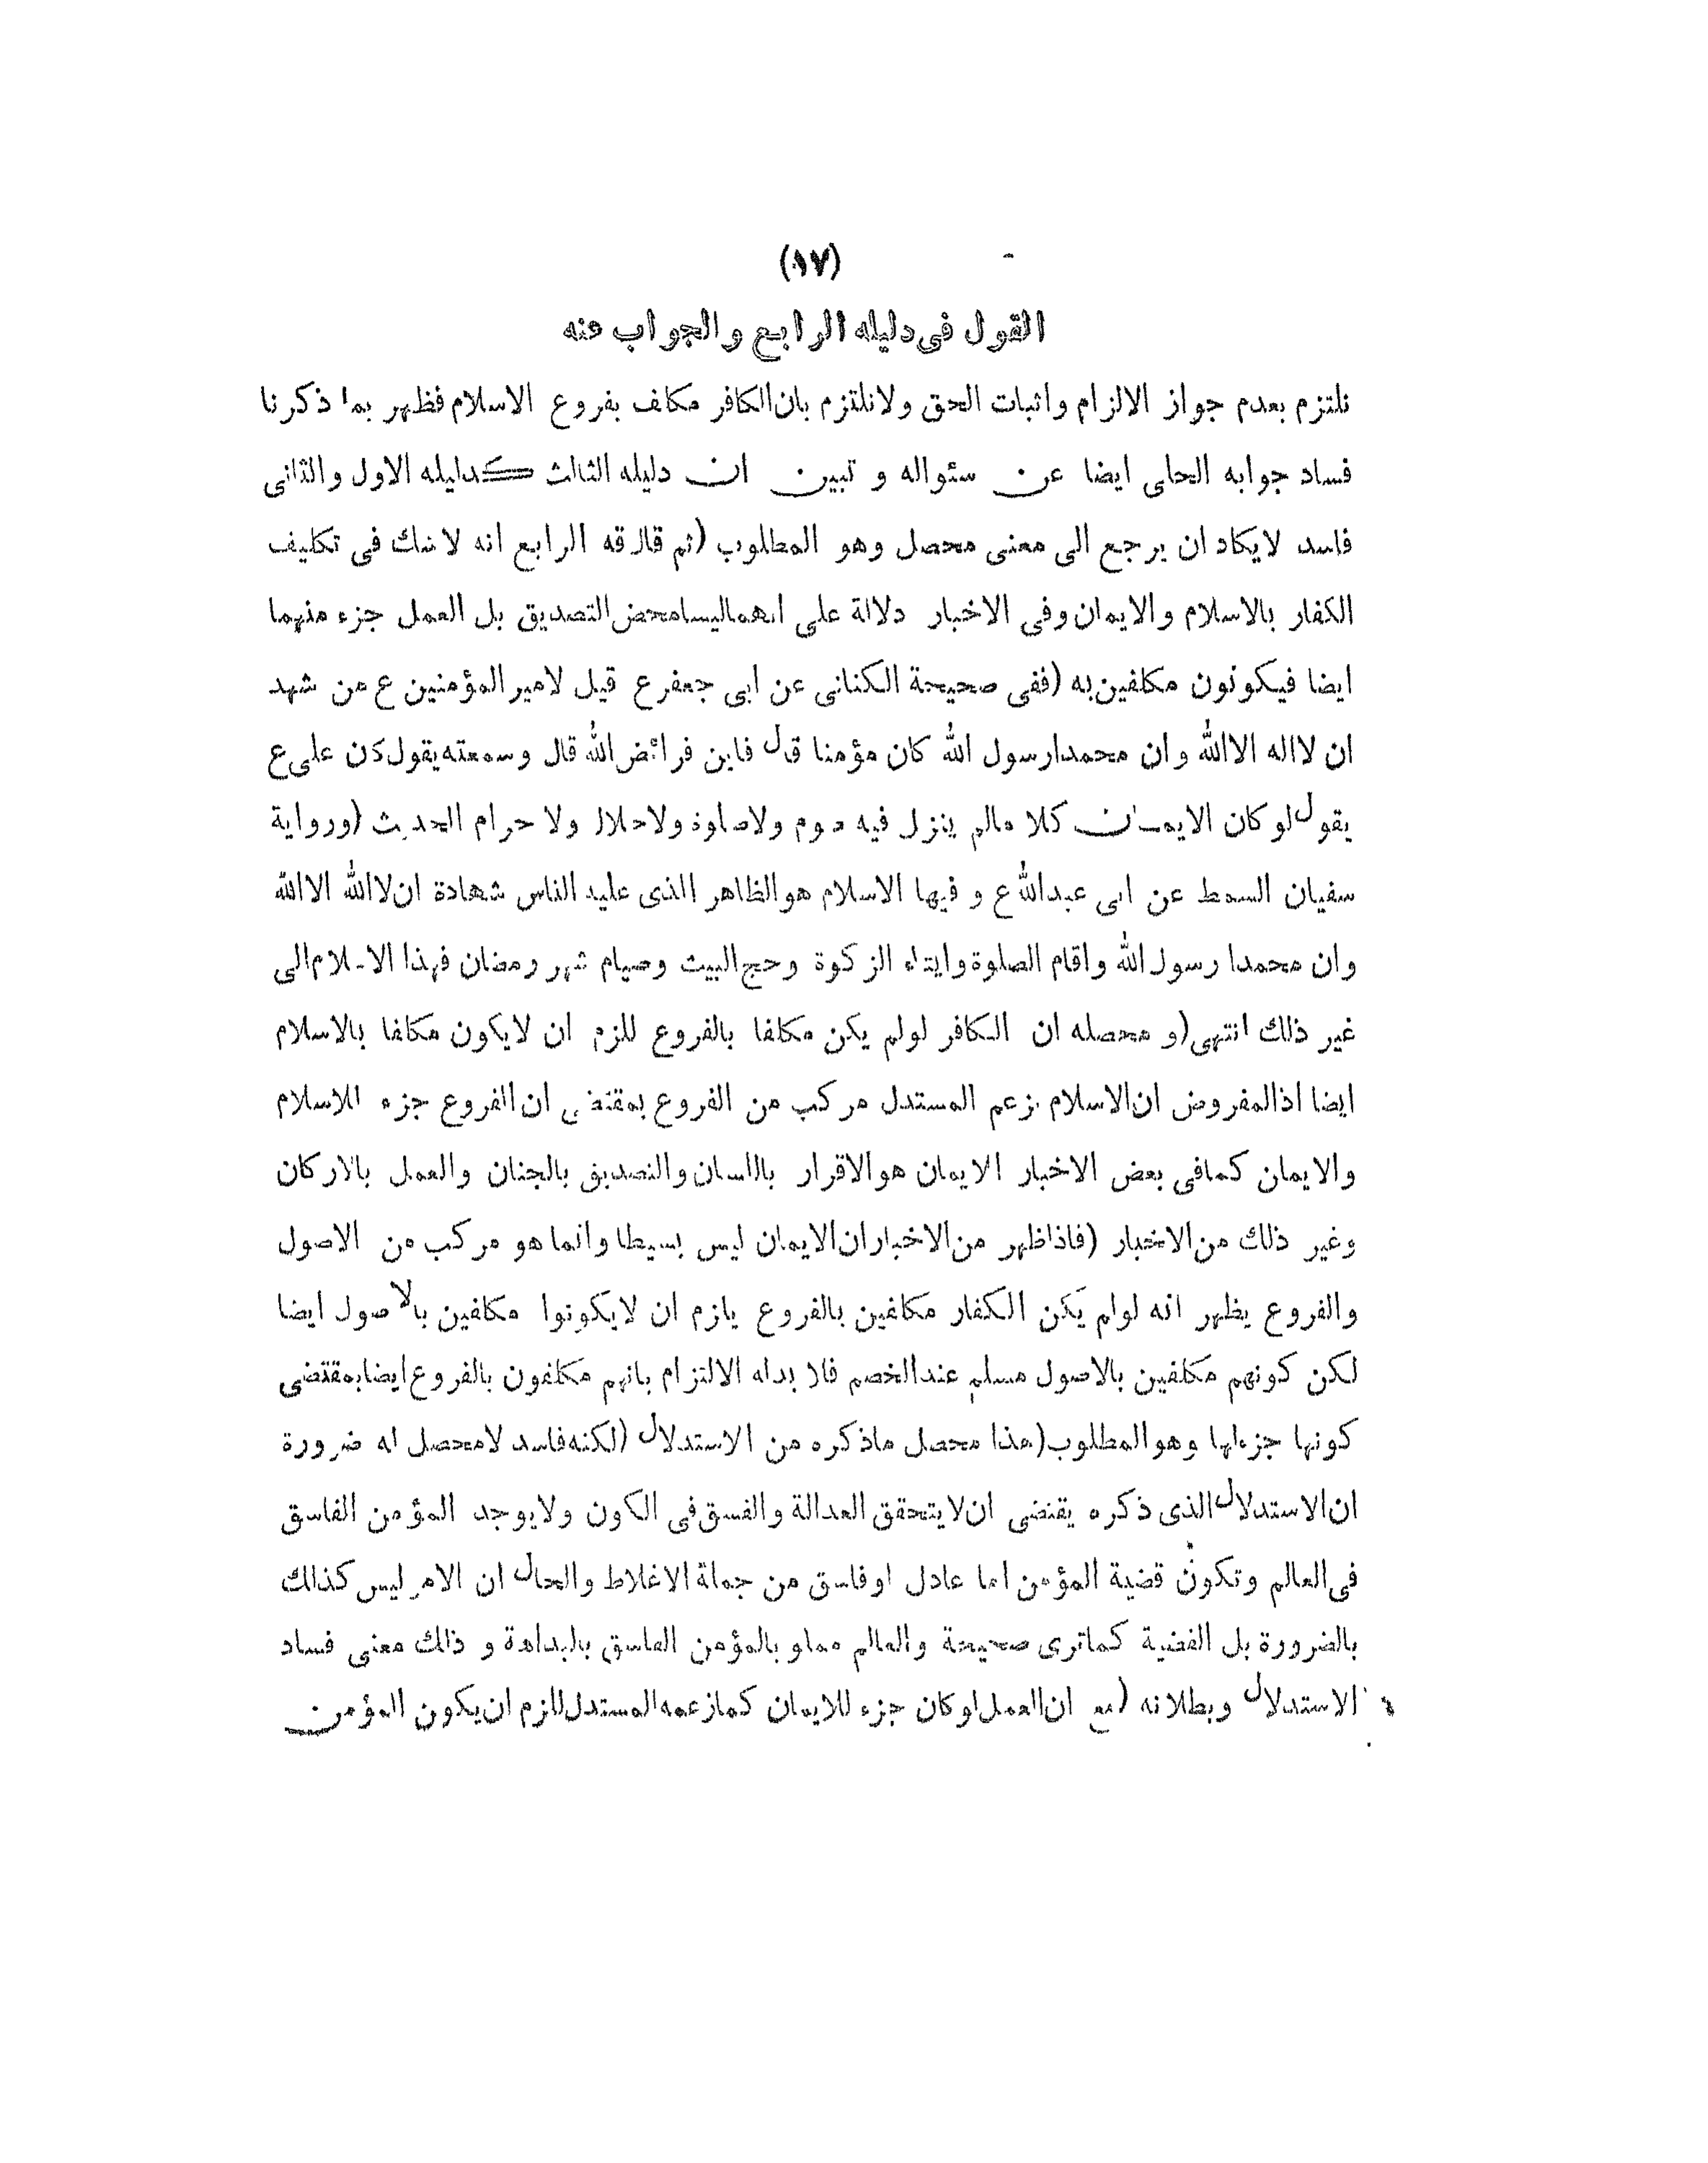 (١٧)
القول فى دليله الرابع والجواب عنه
نلتزم بعدم جواز الالزام واثبات الحق ولانلتزم بان الكافر مكلف بفروع الاسلام فظهر بما ذكرنا
فساد جوابه الحلى ايضا عن سئواله و تبين ان دليله الثالث كدليله الاول والثانى
فاسد لايكاد ان يرجع الى معنى محصل وهو المطلوب (ثم قال قه الرابع انه لا شك فى تكليف
الكفار بالاسلام والايمان وفى الاخبار دلالة على انهماليسا محض التصديق بل العمل جزء منهما
ايضا فيكونون مكلفين به (ففى صحيحة الكنانى عن ابى جعفر ع قيل لامير المؤمنين ع من شهد
ان لااله الاالله وان محمدارسول الله كان مؤمنا قال فاين فرائض الله قال وسمعته يقول كان على ع
يقول لو كان الايمان كلا مالم ينزل فيه صوم ولاصلوة ولاحلال ولا حرام الحديث (ورواية
سفيان السمط عن ابى عبدالله ع و فيها الاسلام هوالظاهر الذى عليه الناس شهادة ان لاالله الاالله
وان محمدا رسول الله واقام الصلوة وايتاء الزكوة وحج البيت وصيام شهر رمضان فهذا الاسلام الى
غير ذلك انتهى (و محصله ان الكافر لولم يكن مكلفا بالفروع للزم ان لايكون مكلفا بالاسلام
ايضا اذالمفروض ان الاسلام بزعم المستدل مركب من الفروع بمقتضى ان الفروع جزء للاسلام
والايمان كمافى بعض الاخبار الايمان هوالاقرار باللسان والتصديق بالجنان والعمل بالاركان
وغير ذلك من الاخبار (فاذاظهر من الاخباران الايمان ليس بسيطا وانما هو مركب من الاصول
والفروع يظهر انه لولم يكن الكفار مكلفين بالفروع يلزم ان لايكونوا مكلفين بالاصول ايضا
لكن كونهم مكلفين بالاصول مسلم عندالخصم فلا بدله الالتزام بانهم مكلفون بالفروع ايضا بمقتضى
كونها جزءلها وهوالمطلوب (هذا محصل ماذكره من الاستدلال (لكنه فاسد لامحصل له ضرورة
ان الاستدلال الذى ذكره يقتضى ان لايتحقق العدالة والفسق فى الكون ولايوجد المؤمن الفاسق
فى العالم وتكون قضية المؤمن اما عادل اوفاسق من جملة الاغلاط والحال ان الامر ليس كذلك
بالضرورة بل القضية كماترى صحيحة والعالم مملو بالمؤمن الفاسق بالبداهة و ذلك معنى فساد
الاستدلال وبطلانه (مع ان العمل لوكان جزء للايمان كمازعمه المستدل للزم ان يكون المؤمن